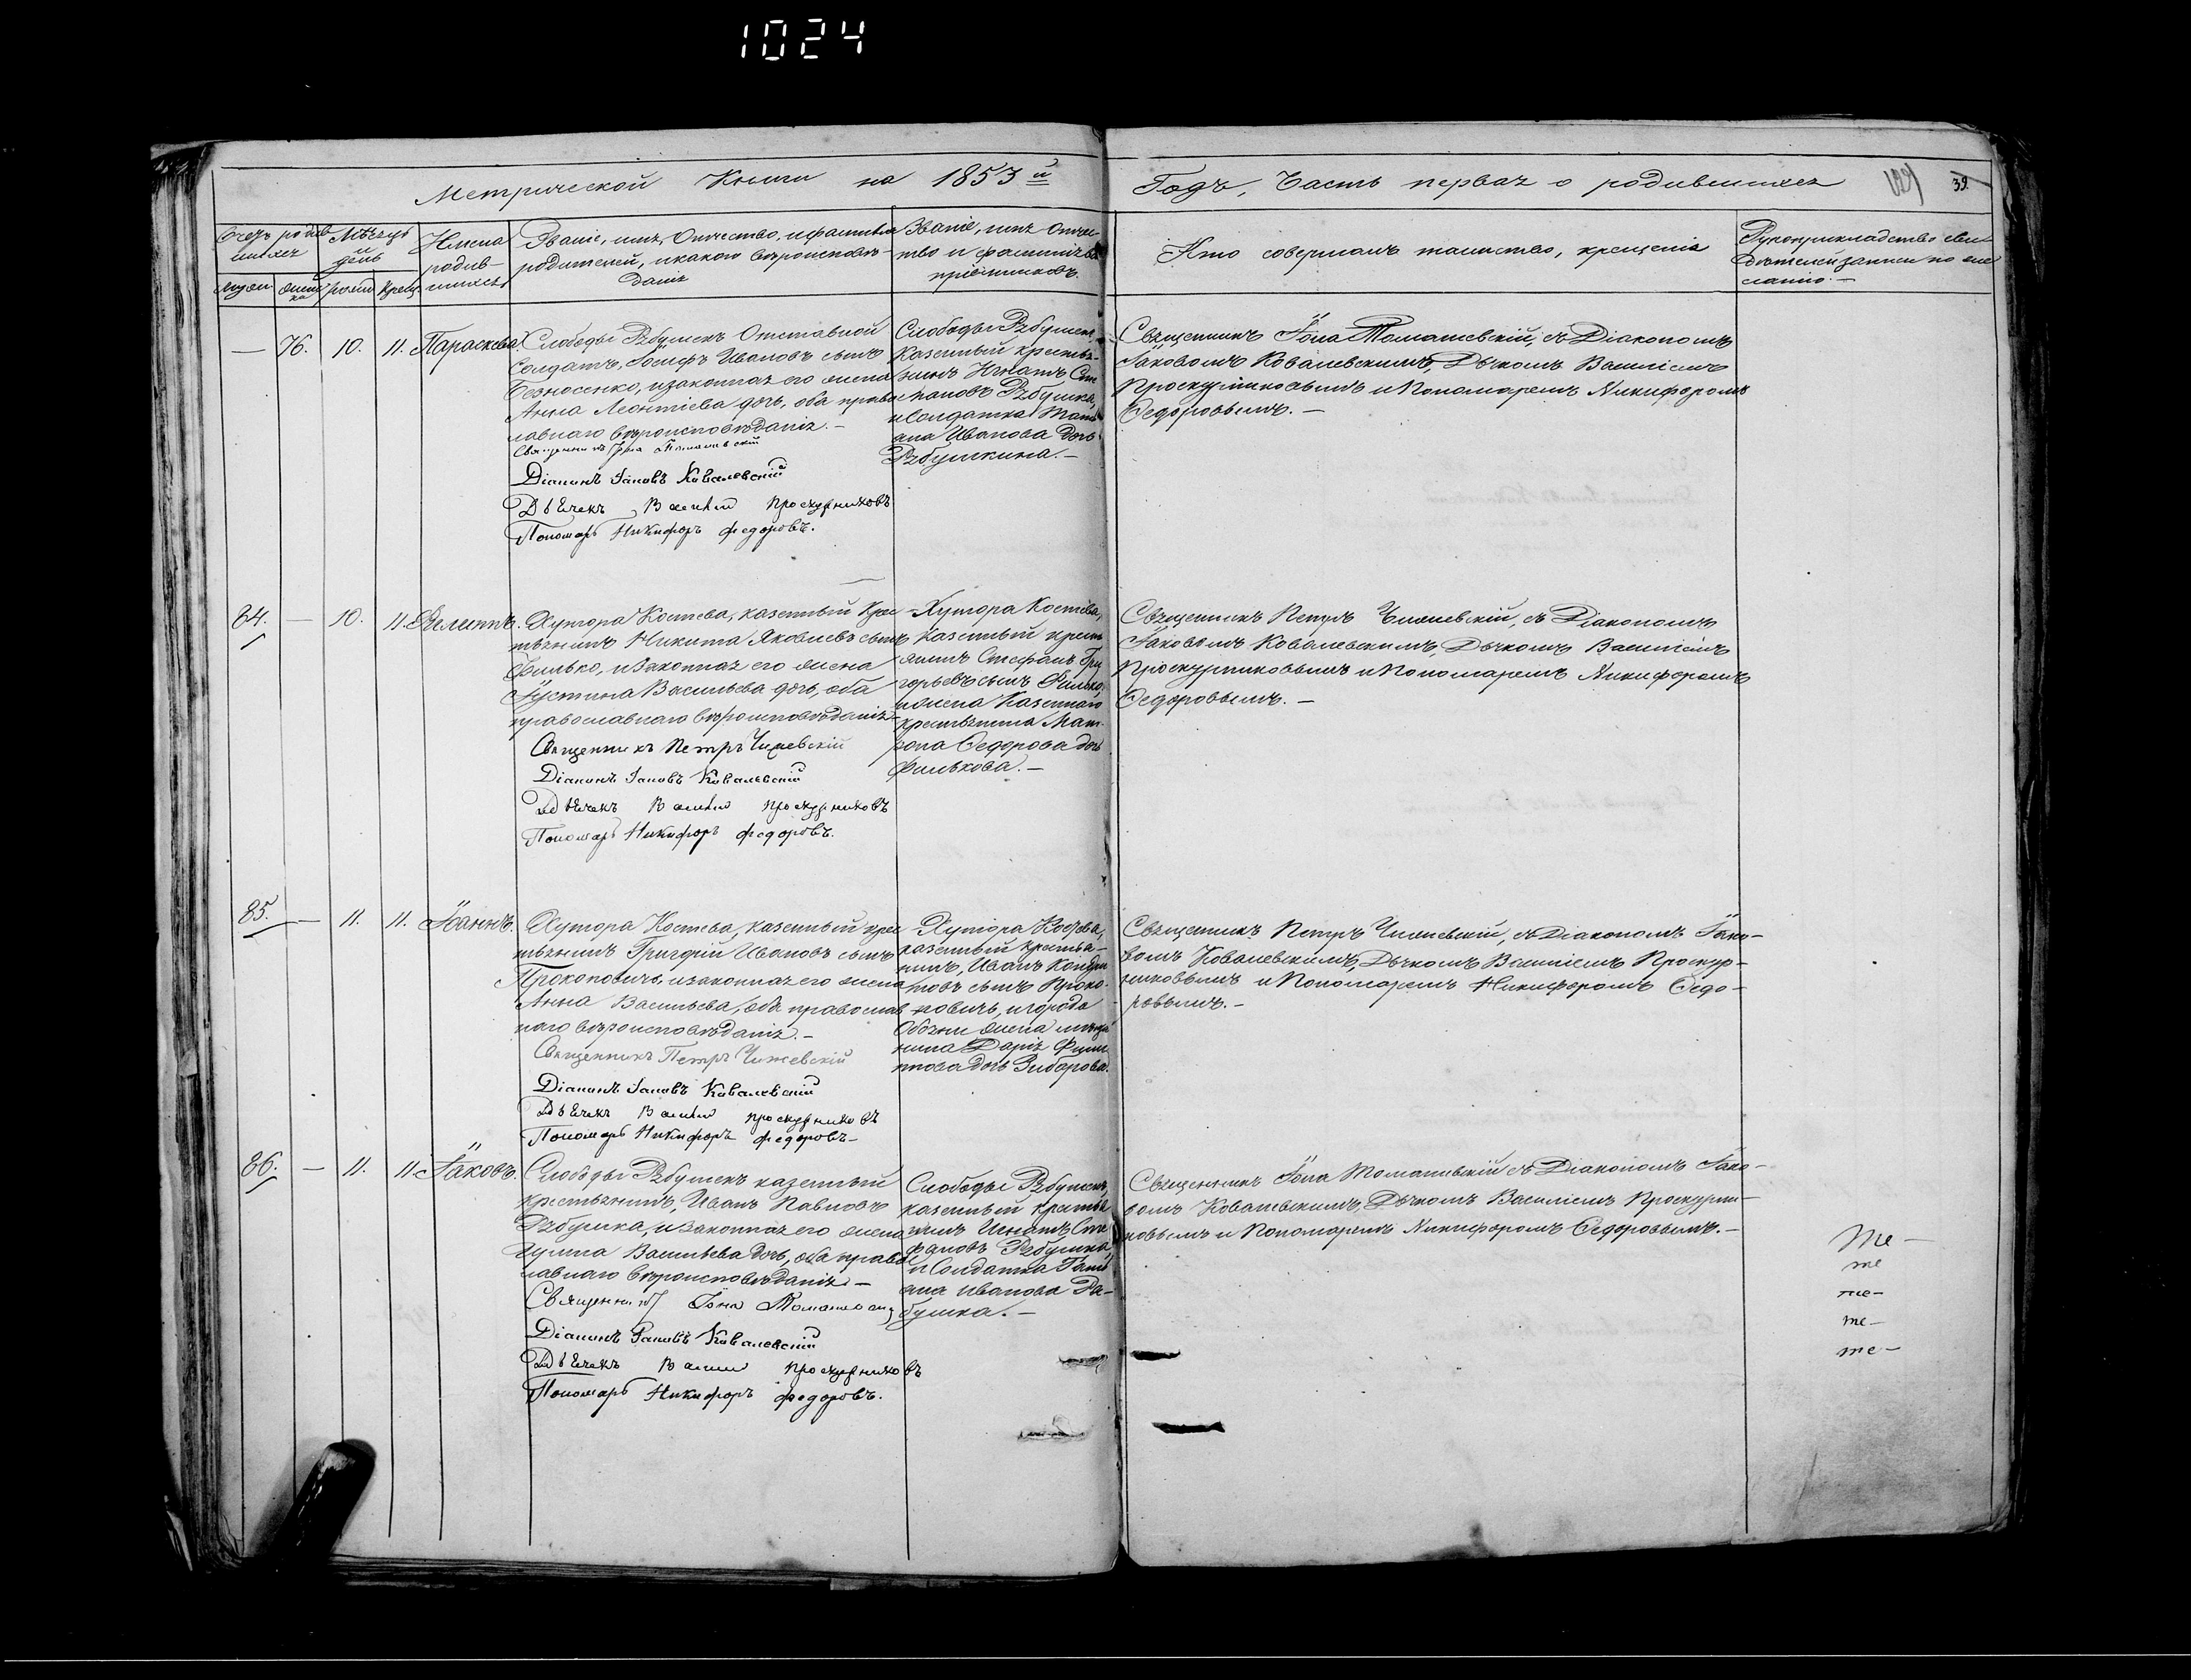 1024
Метрической Книги на 1853й
Годъ, Часть первая о родившихся
39.
Счетъ родив
шихся
Мѣсяцъ
день
Имена
родив-
шихся
Званіе, имя, Отчество, и фамилія
родителей, и какого вѣроисповѣ-
данія
Званіе, имя Отчес
тво и фамилія
пріемниковъ.
Кто совершалъ таинство, крещенія
Рукоприкладство сви-
дѣтелей записи по же
ланію.-
— 76. 10. 11. Параскева.
Слободы Рябушекъ Отставной
Солдатъ, Іосифъ Ивановъ сынъ
Безносенко, и законная его жена
Анна Леонтіева дочь, оба право
лавнаго вѣроисповѣданія.-
Священникъ Іона Томашевскій
Діаконъ Іаковъ Ковалевскій
Дьячекъ Василій Проскурниковъ
Пономарь Никифоръ Федоровъ.
Слободы Рябушекъ,
Казенный крестья-
нинъ Игнатъ Сте
пановъ Рябушка,
и Солдатка Тать
яна Иванова дочь
Рябушкина.-
Священникъ Іона Томашевскій, съ Діакономъ
Іаковомъ Ковалевскимъ, Дьячкомъ Василіемъ
Проскурниковымъ и Пономаремъ Никифоромъ
Ѳедоровымъ.-
84. — 10. 11. Филиппъ.
Хутора Костева, казенный крес
тьянинъ Никита Яковлевъ сынъ
Филько, и законная его жена
Іустина Васильева дочь, оба
православнаго вѣроисповѣданія
Священникъ Петръ Чижевскій
Діаконъ Іаковъ Ковалевскій
Дьячекъ Василій Проскурниковъ
Пономарь Никифоръ Федоровъ.
Хутора Костева,
казенный крест
янинъ Стефанъ Гри
горьевъ сынъ Филько,
и жена Казеннаго
крестьянина Мат
рона Ѳедорова дочь
Филькова.-
Священникъ Петръ Чижевскій, съ Діакономъ
Іаковомъ Ковалевскимъ, Дьячкомъ Василіемъ
Проскурниковымъ и Пономаремъ Никифоромъ
Ѳедоровымъ.-
85. — 11. 11. Іоаннъ.
Хутора Костева, казенный крес
тьянинъ Григорій Ивановъ сынъ
Прокоповичъ, и законная его жена
Анна Васильева, оба православ
наго вѣроисповѣданія.-
Священникъ Петръ Чижевскій
Діаконъ Іаковъ Ковалевскій
Дьячекъ Василій Проскурниковъ
Пономарь Никифоръ Федоровъ-
Хутора Костева,
казенный крестья-
нинъ, Иванъ Кондра
товъ сынъ Проко-
повичъ, и города
Обояни жена мѣща
нина Дарія Филип
пова дочь Зиборова.
Священникъ Петръ Чижевскій, съ Діакономъ Іако-
вомъ Ковалевскимъ, Дьячкомъ Василіемъ Проскур-
никовымъ и Пономаремъ Никифоромъ Ѳедо-
ровымъ.-
86. — 11. 11. Іаковъ.
Слободы Рябушекъ казенный
крестьянинъ, Иванъ Павловъ
Рябушка, и законная его жена
Васильева дочь, оба правос
лавнаго вѣроисповѣданія.-
Священникъ Іона Томашевскій
Діаконъ Іаковъ Ковалевскій
Дьячекъ Василій Проскурниковъ
Пономарь Никифоръ Федоровъ.
Слободы Рябушекъ,
казенный крестья
нинъ Игнатъ Сте
фановъ Рябушка,
и Солдатка Тать
яна Иванова Ря-
бушка.-
Священникъ Іона Томашевскій съ Діакономъ Іако-
вомъ Ковалевскимъ, Дьячкомъ Василіемъ Проскурни-
ковымъ и Пономаремъ Никифоромъ Ѳедоровымъ.-
Те-
те
те-
те-
те-